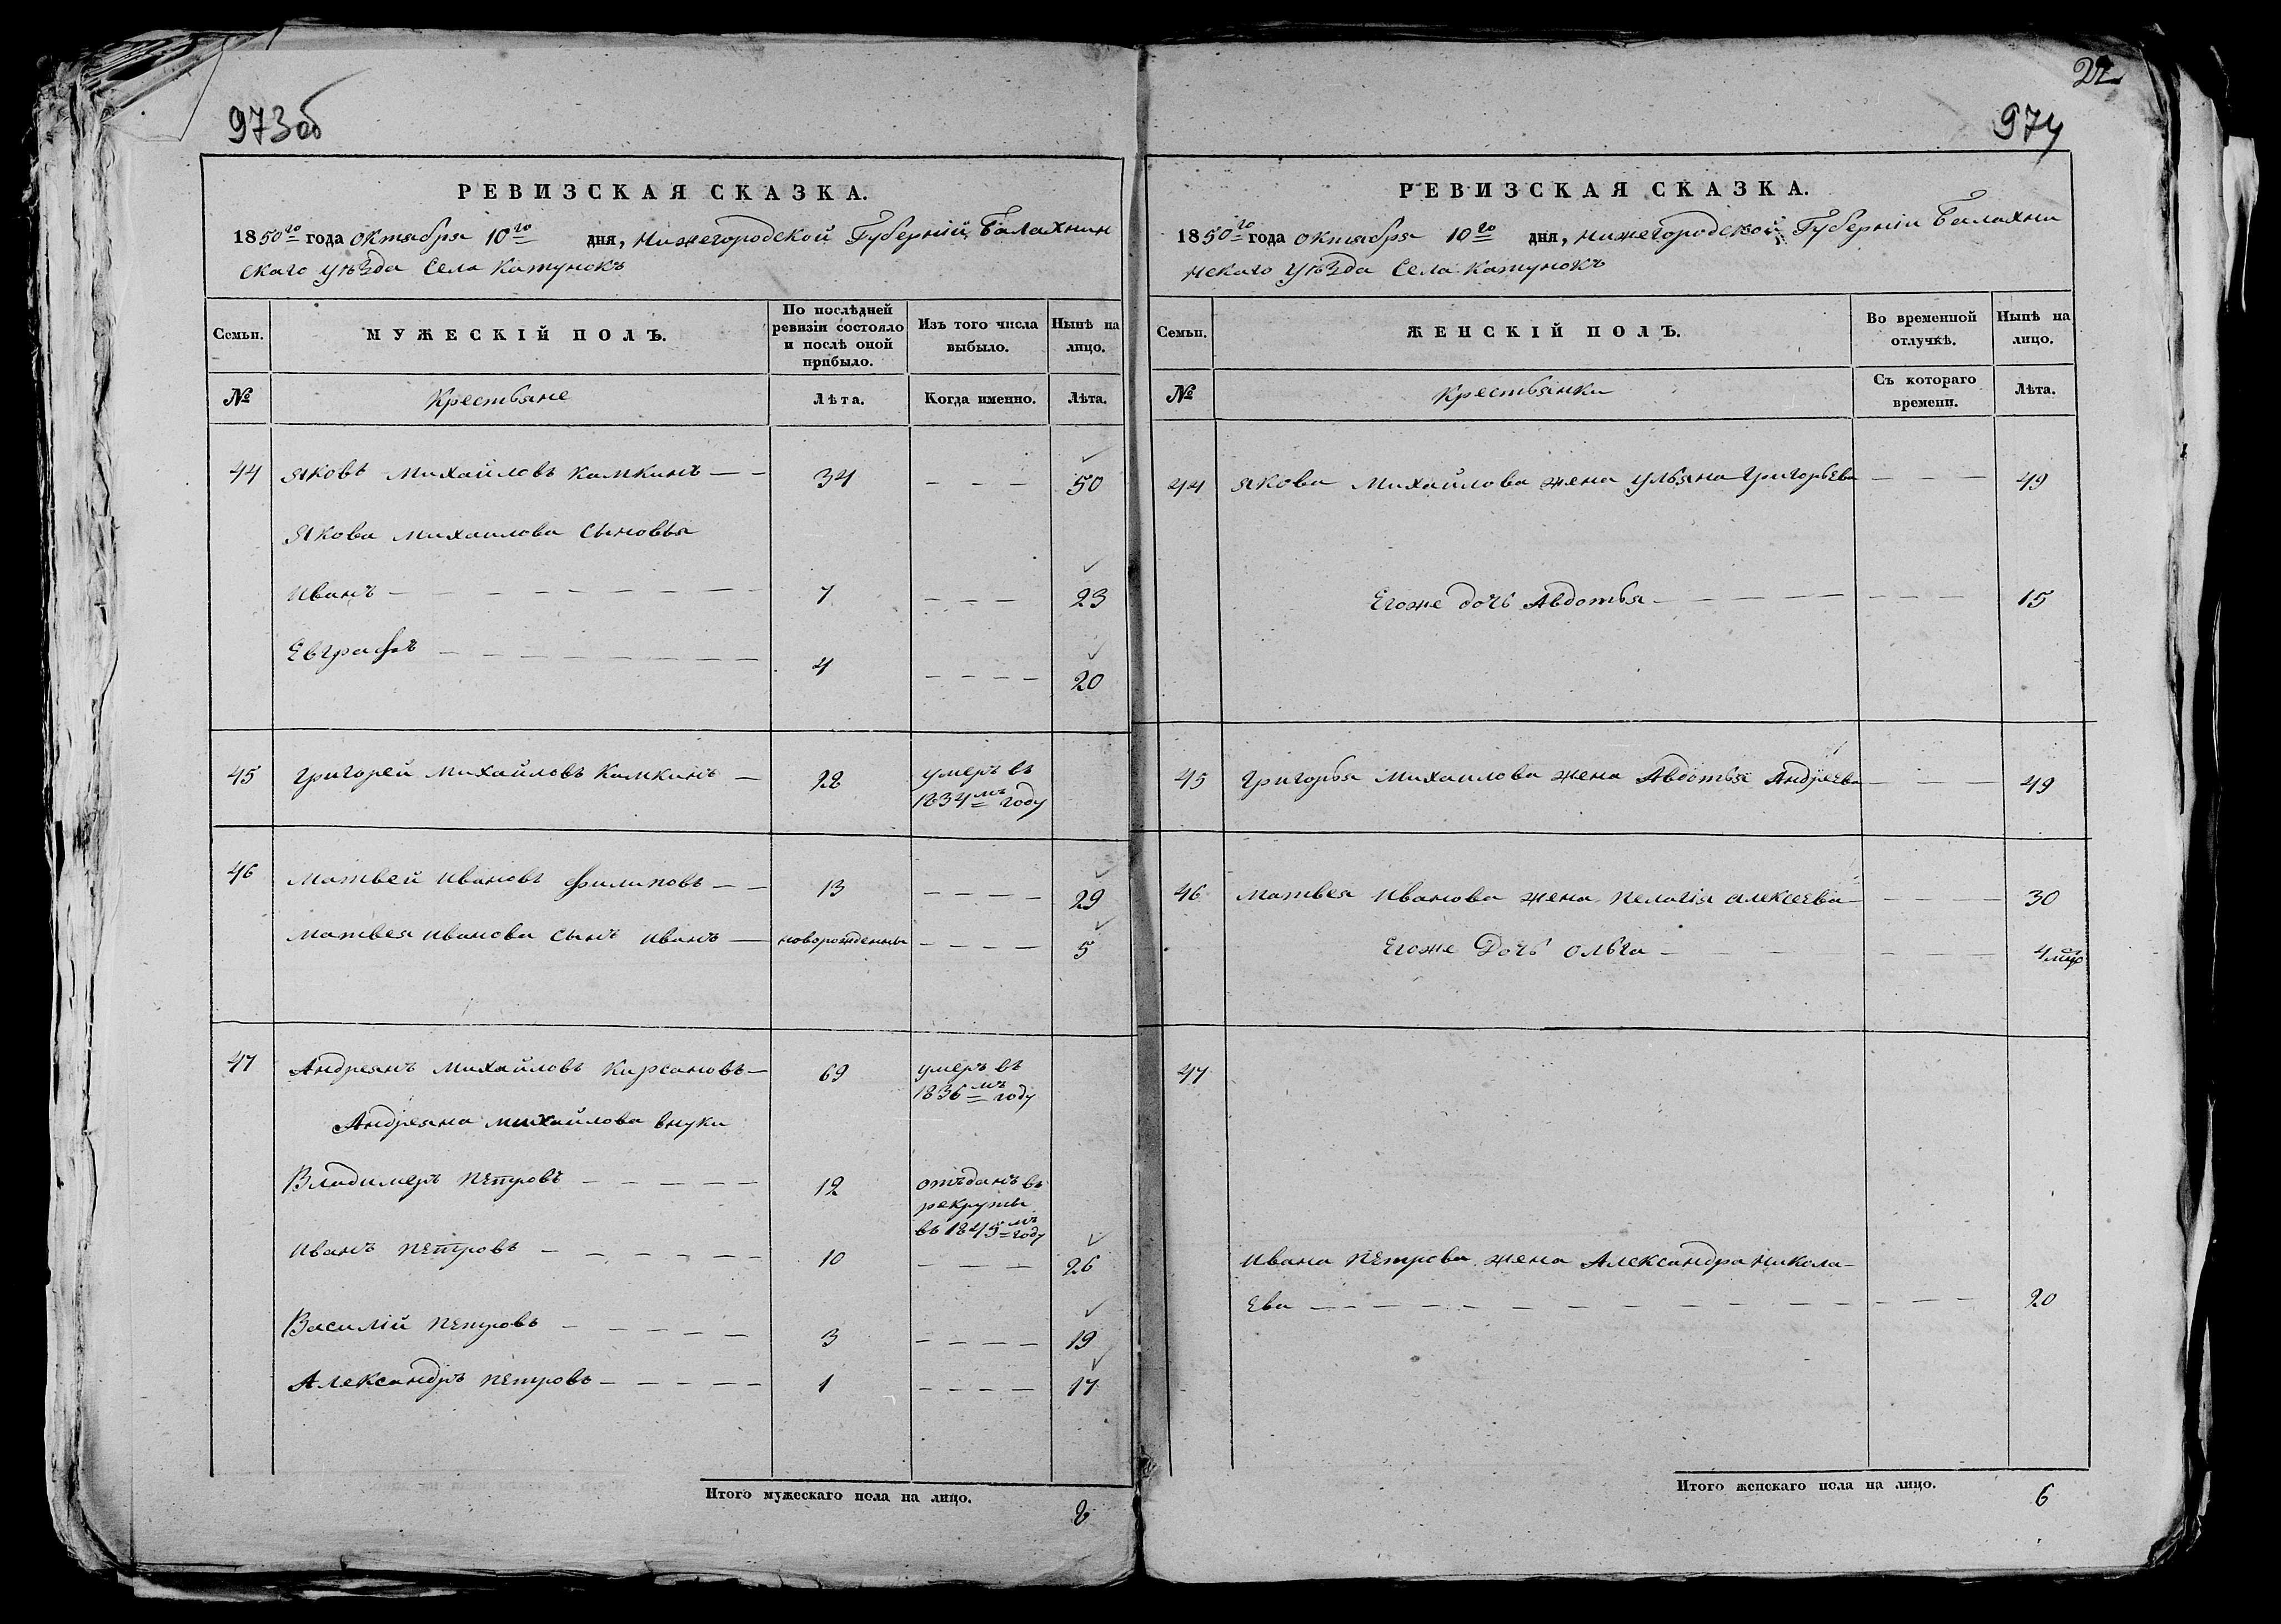 973об
РЕВИЗСКАЯ СКАЗКА.
1850го года октября 10го дня, Нижегородской Губерніи Балахнин
скаго уѣзда Села Катунокъ
Семьи. МУЖЕСКІЙ ПОЛЪ. По послѣдней ревизіи состояло и послѣ оной прибыло. Изъ того числа выбыло. Нынѣ на лицо.
№ Крестьяне Лѣта. Когда именно. Лѣта.
44 Яковъ Михайловъ Камкинъ — — 34 — — — 50
Якова Михаилова сыновья
Иванъ — — — 7 — — — 23
Евграфъ — — — 4 — — — — 20
45 Григорей Михайловъ Камкинъ — 28 умеръ въ
1834мъ году
46 Матвей Ивановъ Филиповъ — — 13 — — — — 29
Матвея Иванова сынъ Иванъ — новорожденны — — — — 5
47 Андреянъ Михайловъ Кирсановъ — 69 умеръ въ
1836мъ году
Андреяна Михайлова внуки
Владимеръ Петровъ — — — — — 12 отъданъ въ
рекруты
въ 1845мъ году
Иванъ Петровъ — — — — — 10 — — — 26
Василій Петровъ — — — — — 3 — — — — 19
Александръ Петровъ — — — — — 1 — — — — 17
Итого мужескаго пола на лицо. 8
22
974
РЕВИЗСКАЯ СКАЗКА.
1850го года октября 10го дня, Нижегородской Губерніи Балахни
нскаго уѣзда Села Катунокъ
Семьи. ЖЕНСКІЙ ПОЛЪ. Во временной отлучкѣ. Нынѣ на лицо.
№ Крестьянки Съ котораго времени. Лѣта.
44 Якова Михайлова жена Ульяна Григорьева — — — 49
Егоже дочь Авдотья — — — 15
45 Григорья Михаилова жена Авдотья Андреева — — — 49
46 Матвея Иванова жена Пелагія Алексеева — — — — 30
Егоже Дочь Ольга — — — 4 мцо
47
Ивана Петрова жена Александра Никола-
ева — — — 20
Итого женскаго пола на лицо. 6